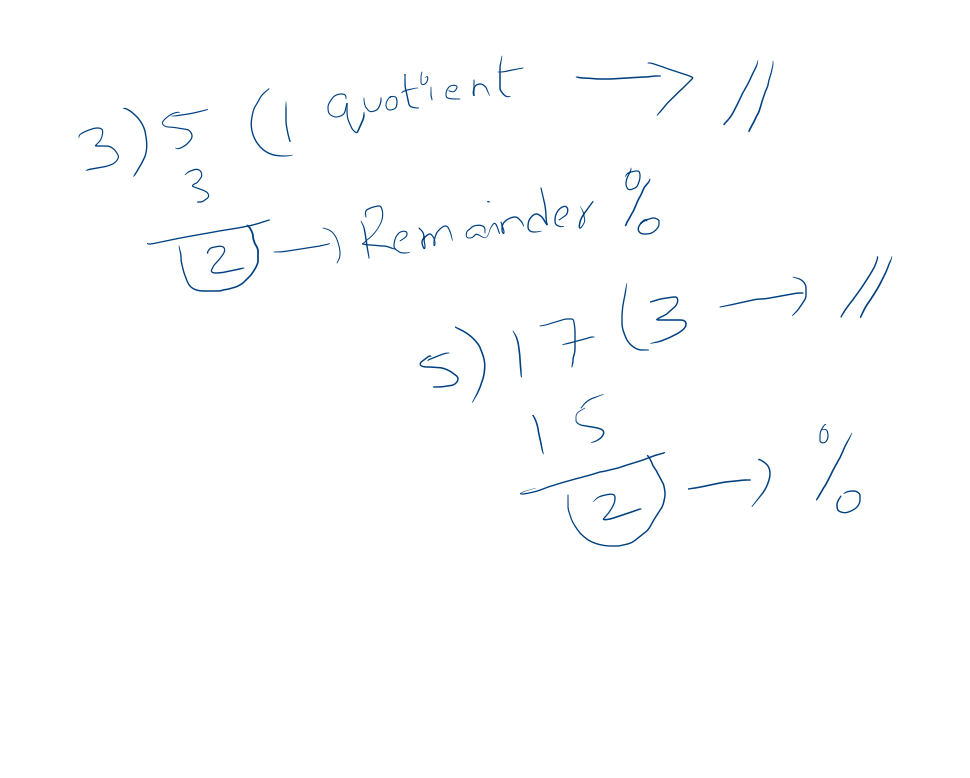 3) 5 (1 quotient → //
3
2 → Remainder %
5) 17 (3 → //
15
2 → %